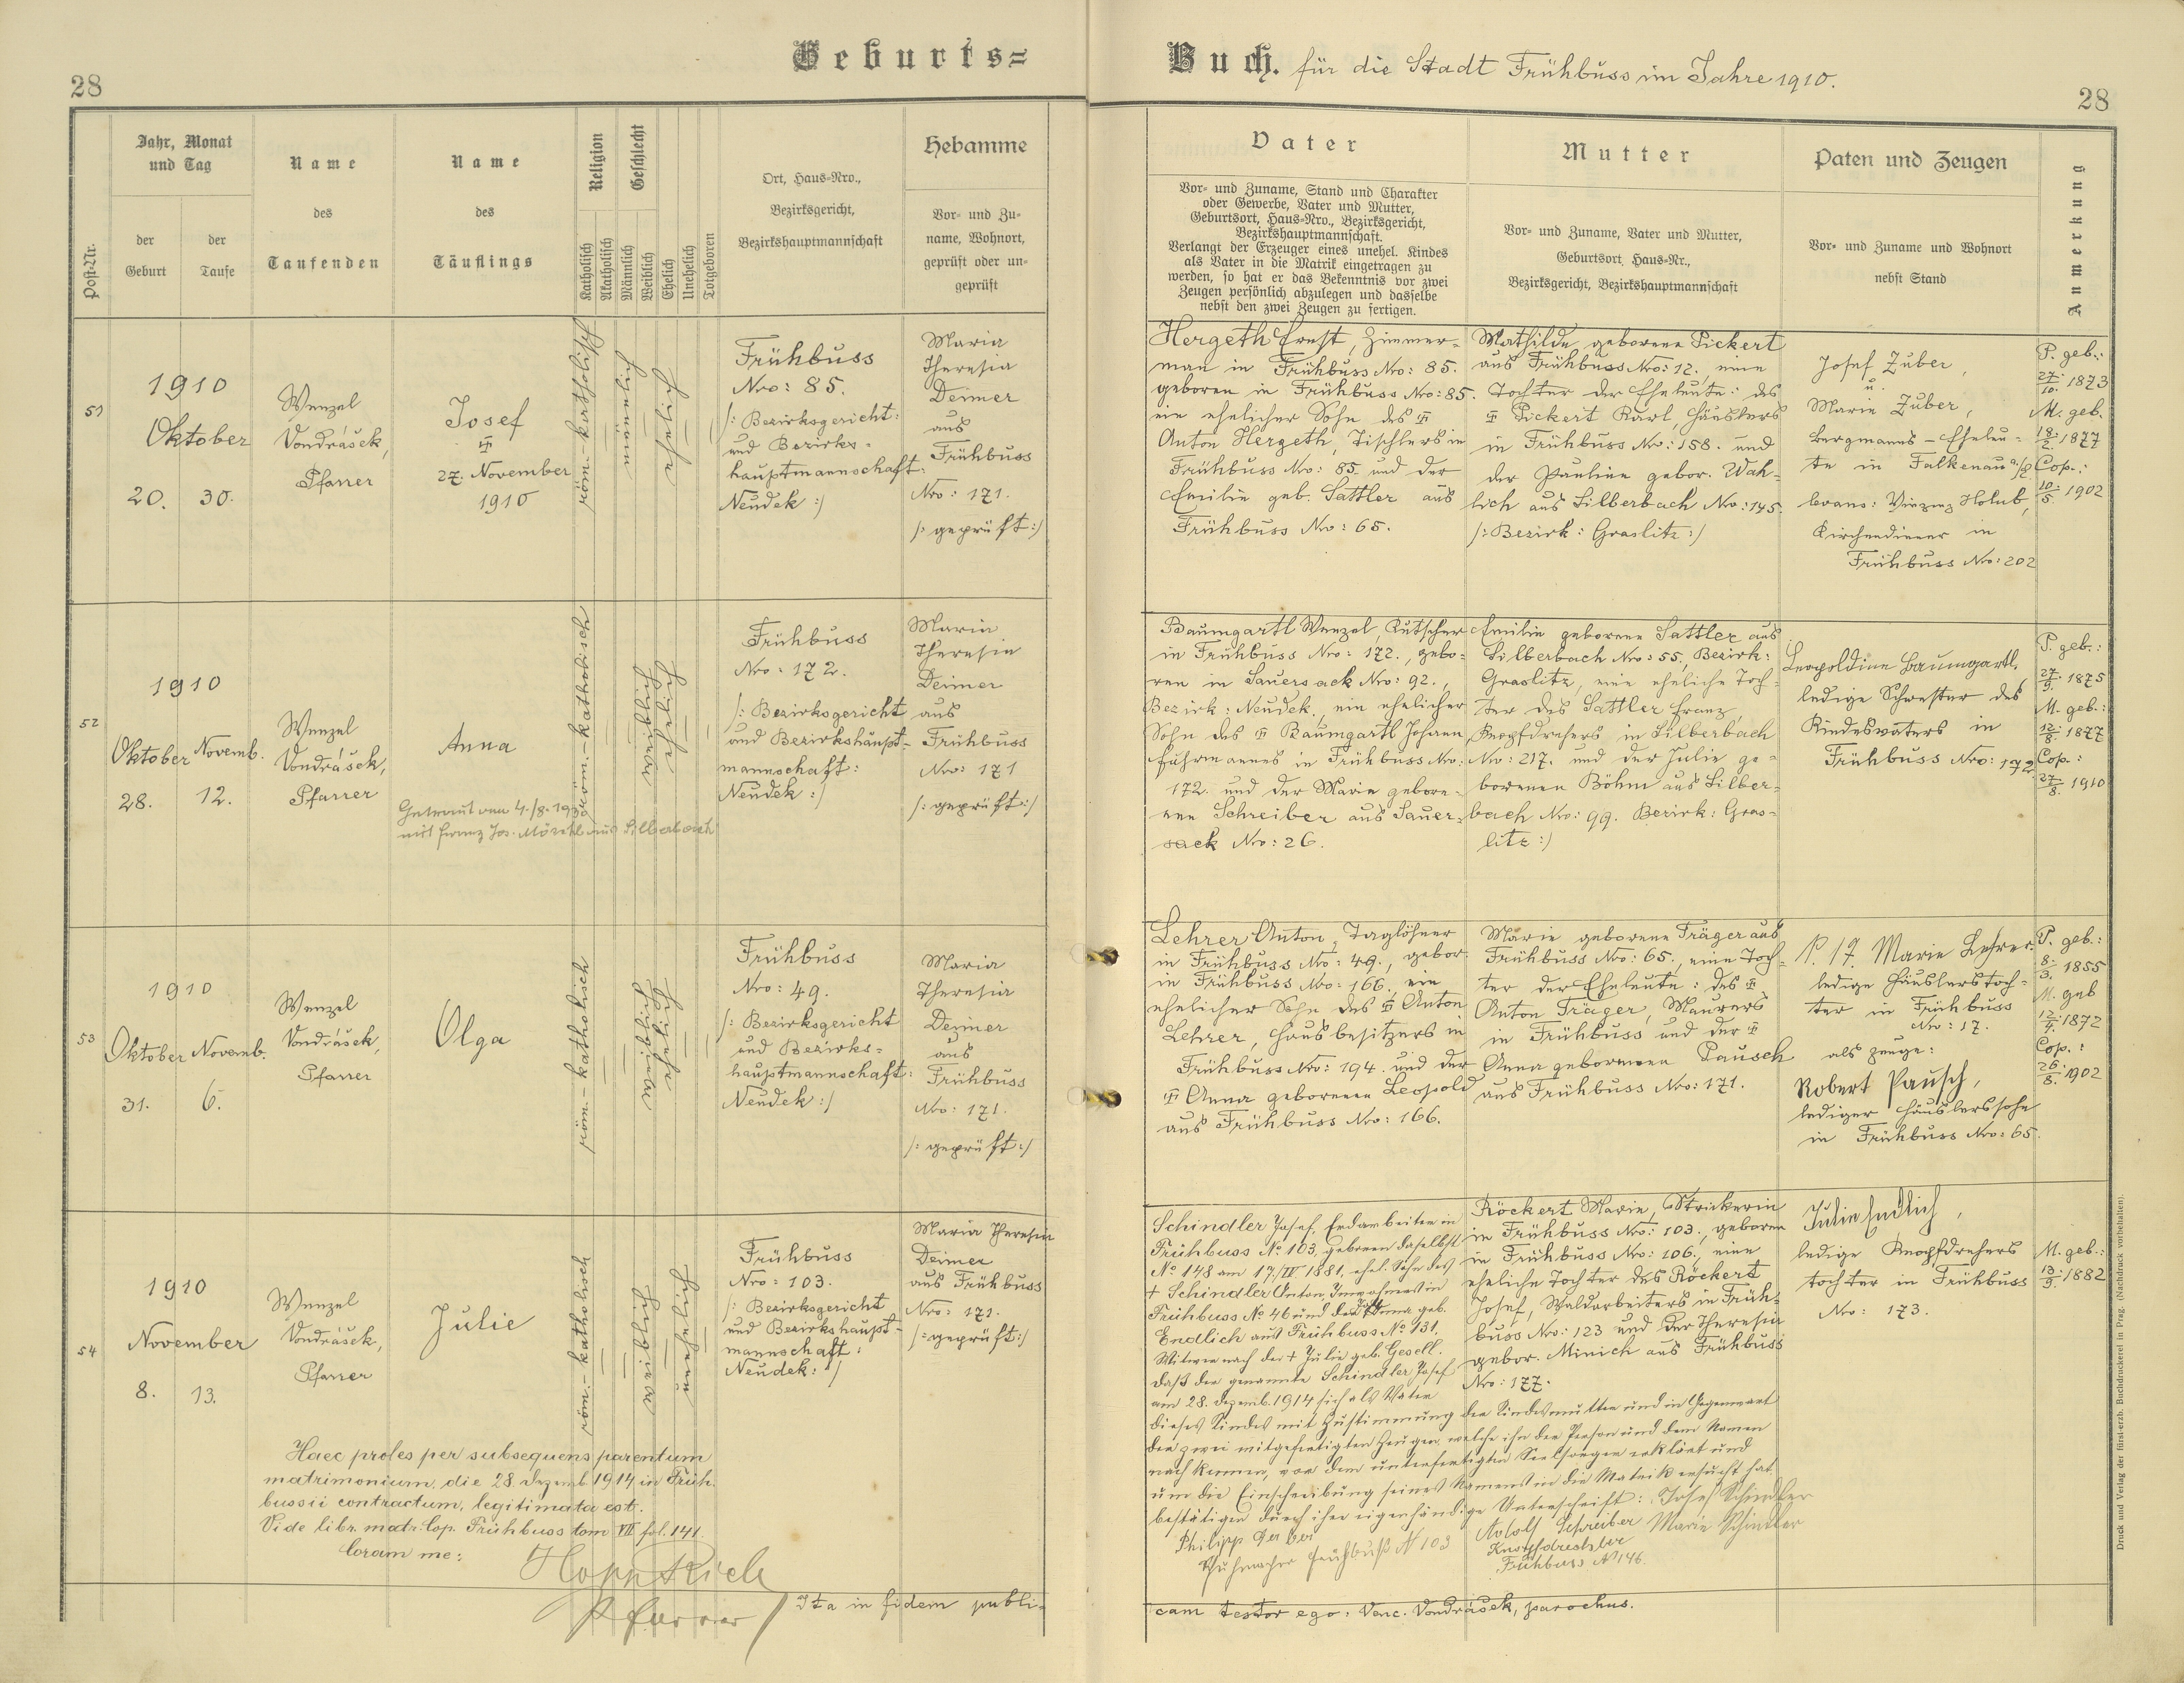 Geburts=
Buch. für die Stadt Frühbuss im Jahre 1910.
28
28
Post-Nr.
Jahr, Monat
und Tag
der
Geburt
der
Taufe
Name
des
Taufenden
Name
des
Täuflings
Religion
Katholisch
Akatholisch
Geschlecht
Männlich
Weiblich
Ehelich
Unehelich
Totgeboren
Ort, Haus=Nro.,
Bezirksgericht,
Bezirkshauptmannschaft
Hebamme
Vor= und Zu=
name, Wohnort,
geprüft oder un=
geprüft
Vater
Vor= und Zuname, Stand und Charakter
oder Gewerbe, Vater und Mutter,
Geburtsort, Haus=Nro., Bezirksgericht,
Bezirkshauptmannschaft.
Verlangt der Erzeuger eines unehel. Kindes
als Vater in die Matrik eingetragen zu
werden, so hat er das Bekenntnis vor zwei
Zeugen persönlich abzulegen und dasselbe
nebst den zwei Zeugen zu fertigen.
Mutter
Vor= und Zuname, Vater und Mutter,
Geburtsort, Haus=Nr.,
Bezirksgericht, Bezirkshauptmannschaft
Paten und Zeugen
Vor= und Zuname und Wohnort
nebst Stand
Anmerkung
51
1910
Oktober
20. 30.
Wenzel
Vondrášek,
Pfarrer
Josef
27. November
1910
röm.-katholisch
Frühbuss
Nro: 85.
/: Bezirksgericht:
und Bezirks=
hauptmannschaft:
Neudek :/
Maria
Theresia
Deimer
aus
Frühbuss
Nro: 171.
/: geprüft :/
Hergeth Ernst, Zimmer=
man in Frühbuss Nro: 85.
geboren in Frühbuss Nro: 85.
ein ehelicher Sohn des
Anton Hergeth, Tischlers in
Frühbuss Nro: 85 und der
Emilie geb. Sattler aus
Frühbuss Nro: 65.
Mathilde geborene Pickert
aus Frühbuss Nro: 12, eine
Tochter der Eheleute: des
Pickert Karl, Häuslers
in Frühbuss Nro: 158. und
der Pauline gebor. Wah=
lich aus Silberbach Nro: 145.
/: Bezirk: Graslitz :/
Josef Zuber,
u.
Marie Zuber,
Bergmanns-Eheleu=
te in Falkenau a/E
Vinzenz Holub,
Kirchendiener in
Frühbuss Nro: 202
P. geb.:
27./10. 1873
M. geb.
18./2. 1877
Cop.:
10./5. 1902
52
1910
Oktober Novemb.
28. 12.
Wenzel
Vondrášek,
Pfarrer
Anna
Getraut am 4./8. 1930
mit Franz Jos. aus Silberbach
röm.-katholisch
Frühbuss
Nro: 172.
/: Bezirksgericht
und Bezirkshaupt=
mannschaft:
Neudek :/
Maria
Theresia
Deimer
aus
Frühbuss
Nro: 171
/: geprüft :/
Baumgartl Wenzel, Kutscher
in Frühbuss Nro: 172., gebo=
ren in Sauersack Nro: 92.,
Bezirk: Neudek, ein ehelicher
Sohn des Baumgartl Johann
Fuhrmannes in Frühbuss Nro:
172. und der Marie gebore=
nen Schreiber aus Sauer=
sack Nro: 26.
Emilie geborene Sattler aus
Silberbach Nro: 55., Bezirk:
Graslitz, eine eheliche Toch=
ter des Sattler Franz,
Knopfdrehers in Silberbach
Nro: 217. und der Julie ge=
borenen Böhm aus Silber=
bach Nro: 99. Bezirk: Gras=
litz :/
Leopoldine Baumgartl,
ledige Schwester des
Kindesvaters in
Frühbuss Nro: 172.
P. geb.:
27./9. 1875
M. geb.:
12./8. 1877
Cop.:
27./8. 1910
53
1910
Oktober Novemb.
31. 6.
Wenzel
Vondrášek,
Pfarrer
Olga
röm.-katholisch
Frühbuss
Nro: 49.
/: Bezirksgericht
und Bezirks=
hauptmannschaft:
Neudek :/
Maria
Theresia
Deimer
aus
Frühbuss
Nro: 171.
/: geprüft :/
Lehrer Anton, Taglöhner
in Frühbuss Nro: 49., gebor.
in Frühbuss Nro: 166, ein
ehelicher Sohn des Anton
Lehrer, Hausbesitzers in
Frühbuss Nro: 194. und der
Anna geborenen Leopold
aus Frühbuss Nro: 166.
Marie geborene Träger aus
Frühbuss Nro: 65., eine Toch=
ter der Eheleute: des
Anton Träger, Maurers
in Frühbuss und der
Anna geborenen Pausch
aus Frühbuss Nro: 171.
Marie Lehrer
ledige Häuslerstoch=
ter in Frühbuss
Nro: 17.
als Zeuge:
Robert Pausch,
lediger Häuslerssohn
in Frühbuss Nro: 65.
P. geb.:
8./3. 1855
M. geb
12./4. 1872
Cop.:
26./8. 1902
54
1910
November
8. 13.
Wenzel
Vondrášek,
Pfarrer
Julie
röm.-katholisch
Frühbuss
Nro: 103.
/: Bezirksgericht
und Bezirkshaupt=
mannschaft:
Neudek :/
Maria Theresia
Deimer
aus Frühbuss
Nro: 171.
/: geprüft :/
Schindler Josef, Erdarbeiter in
Frühbuss No 103, geboren daselbst
No 148 am 17./IV 1881, ehel. Sohn des
+ Schindler Anton, Inwohners in
Frühbuss No 46 und der Anna geb.
Endlich aus Frühbuss No 131.
Witwer nach der + Julie geb. Gesell.
Daß der genannte Schindler Josef
am 28. Dezemb. 1914 sich als Vater
dieses Kindes mit Zustimmung der Kindesmutter und in Gegenwart
der zwei mitgefertigten Zeugen, welche ihn der Person und dem Namen
nach kennen, vor dem unterfertigten Seelsorger erklärt und
um die Einschreibung seines Namens in die Matrik ersucht hat
bestätigen durch ihre eigenhändige Unterschrift: Josef Schindler
Philipp
Schuhmacher Frühbuß N 103
Adolf Schreiber Marie Schindler
Knopfdrechsler
Frühbuss No 146.
Röckert Marie, Strickerin
in Frühbuss Nro: 103., geboren
in Frühbuss Nro: 106., eine
eheliche Tochter des Röckert
Josef, Waldarbeiters in Früh=
buss Nro: 123 und der Theresia
gebor. Minich aus Frühbuss
Nro: 177.
Julie Endlich,
ledige Knopfdrehers
tochter in Frühbuss
Nro: 173.
M. geb.:
13./9. 1882
Haec proles per subsequens parentum
matrimonium die 28. Dezemb. 1914 in Früh
bussii contractum, legitimata est.
Vide libr. matr. Cop. Frühbuss tom VII fol. 141.
Coram me:
Pfarrer
Ita in fidem publi=
cam testor ego: Venc. Vondrášek, parochus.
Druck und Verlag der fürst-erzb. Buchdruckerei in Prag. (Nachdruck vorbehalten).